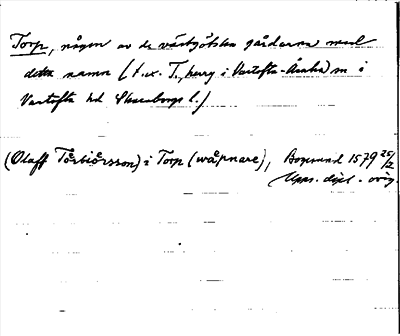 Torp, någon av de västgötska gårdarna med
detta namn (t.ex. T., herrg i Vartofta-Åsaka sn i
Vartofta hd Skaraborgs l.)
(Olaff Tårbiårsson) i Torp (wåpnare), Bogesund 1579 25/2
Upps. dipl. orig.